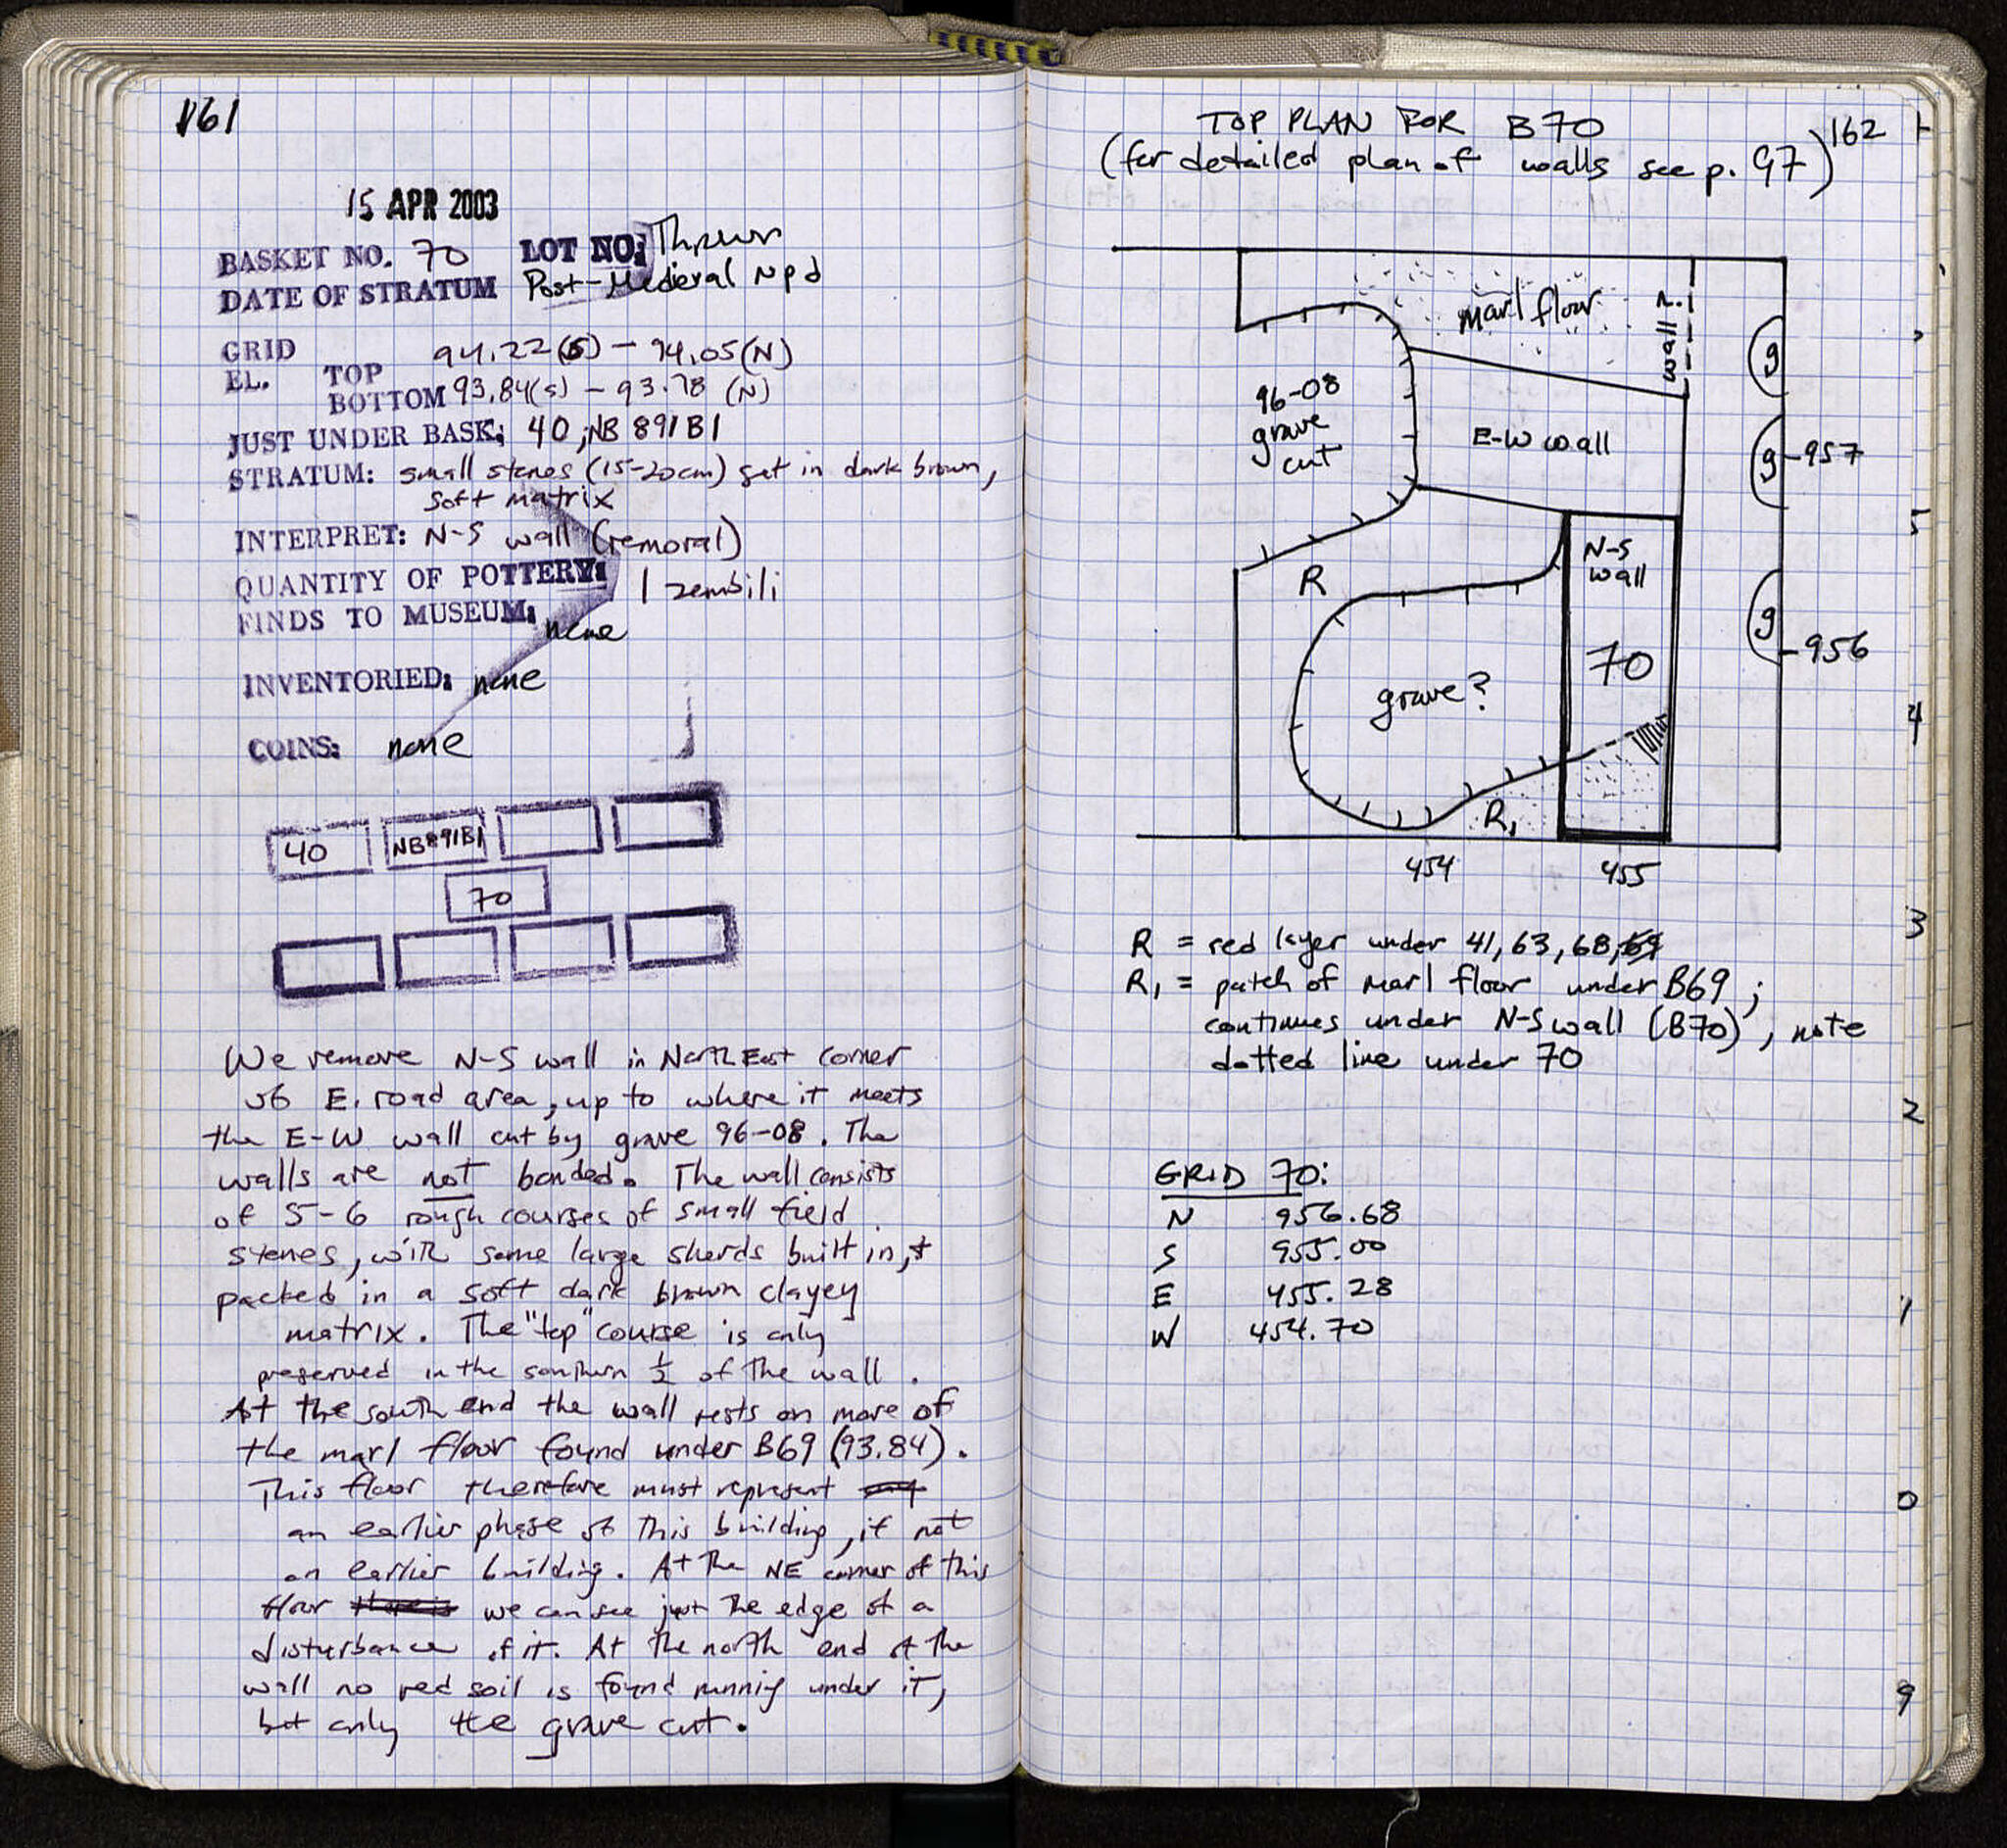 161
15 APR 2003
BASKET NO. 70 LOT NO: Thrown
DATE OF STRATUM Post-Medieval npd
GRID
EL. TOP 94.22(S) - 94.05(N)
BOTTOM 93.84(S) - 93.78 (N)
JUST UNDER BASK: 40; NB 891 B1
STRATUM: small stones (15-20cm) set in dark brown,
soft matrix
INTERPRET: N-S wall (removal)
QUANTITY OF POTTERY: 1 zembili
FINDS TO MUSEUM: none
INVENTORIED: none
COINS: none
40 NB891B1
70
We remove N-S wall in NorthEast corner
of E. road area, up to where it meets
the E-W wall cut by grave 96-08. The
walls are not bonded. The wall consists
of 5-6 rough courses of small field
stones, with some large sherds built in, +
packed in a soft dark brown clayey
matrix. The "top" course is only
preserved in the southern ½ of the wall.
At the south end the wall rests on more of
the marl floor found under B69 (93.84).
This floor therefore must represent
an earlier phase of this building, if not
an earlier building. At the NE corner of this
floor there is we can see just the edge of a
disturbance of it. At the north end of the
wall no red soil is found running under it,
but only the grave cut.
TOP PLAN FOR B70
(for detailed plan of walls see p. 97)
162
marl floor
wall?
g
96-08
grave
cut
E-W wall
g -957
N-S
wall
R
g
-956
70
grave?
R,
454 455
R = red layer under 41, 63, 68, 69
R, = patch of marl floor under B69;
continues under N-S wall (B70), note
dotted line under 70
GRID 70:
N 956.68
S 955.00
E 455.28
W 454.70
5
4
3
2
1
0
9